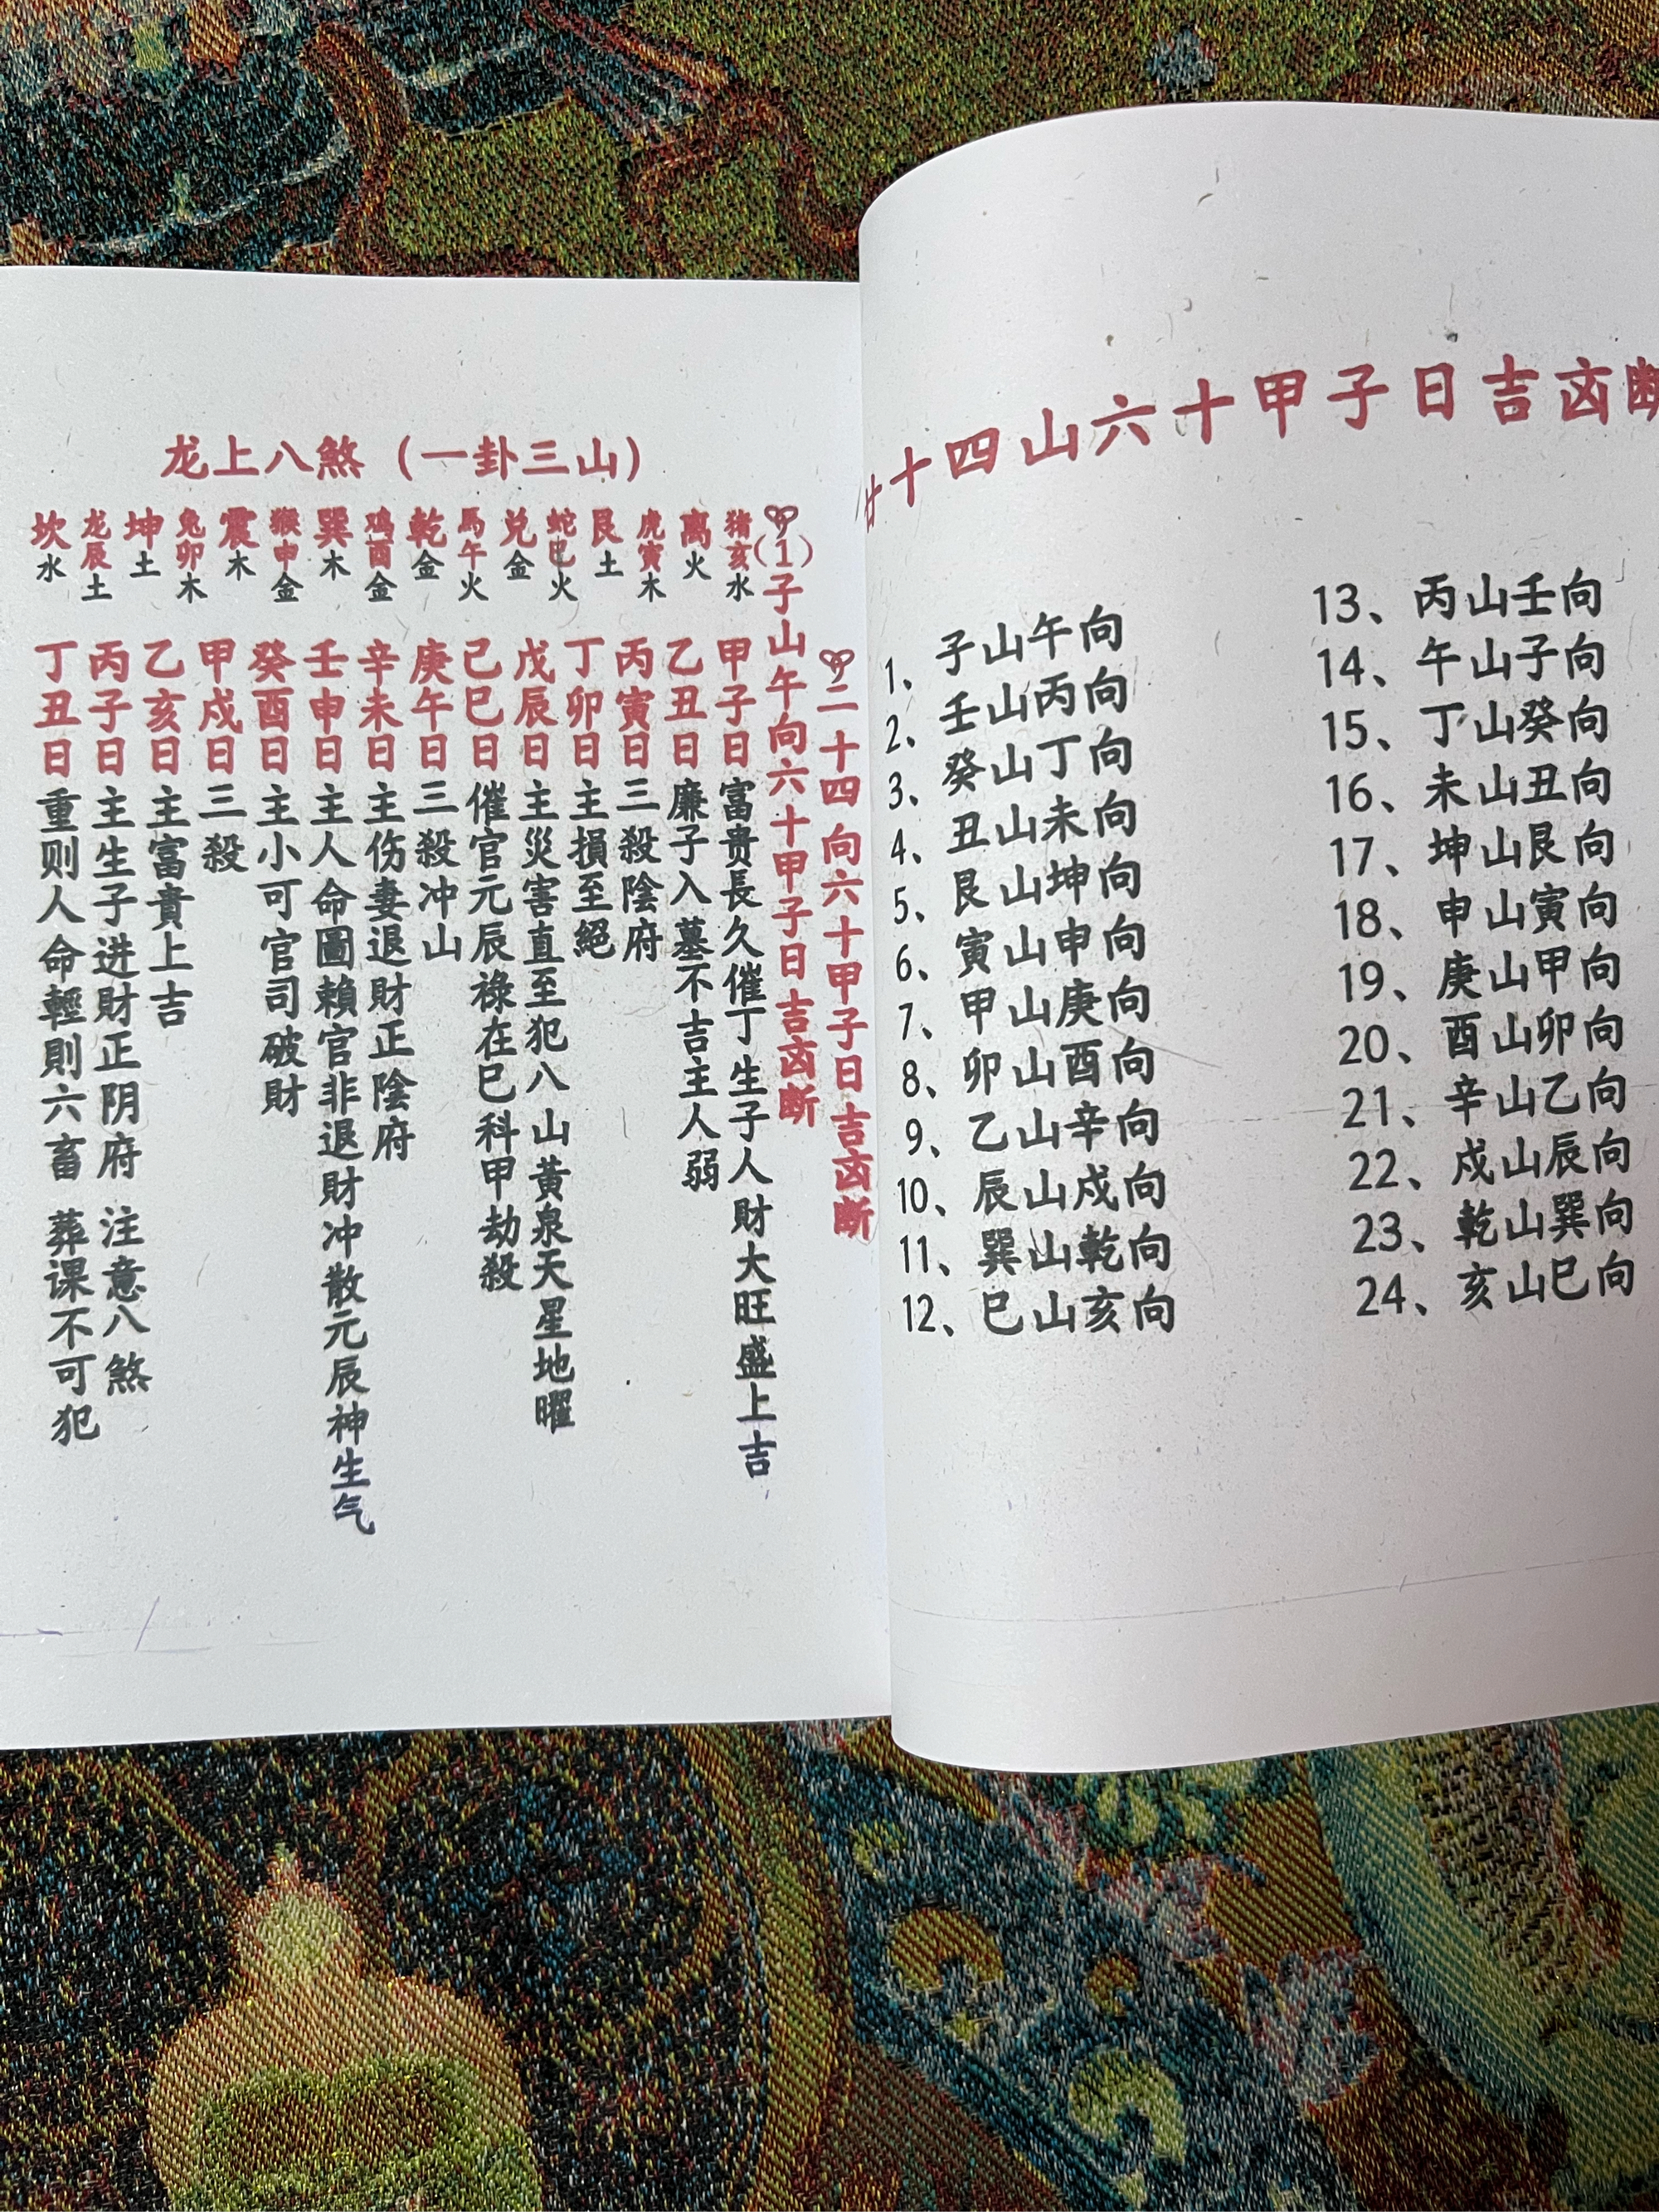 廿十四山六十甲子日吉凶断
1、子山午向
2、壬山丙向
3、癸山丁向
4、丑山未向
5、艮山坤向
6、寅山申向
7、甲山庚向
8、卯山酉向
9、乙山辛向
10、辰山戍向
11、巽山乾向
12、巳山亥向
13、丙山壬向
14、午山子向
15、丁山癸向
16、未山丑向
17、坤山艮向
18、申山寅向
19、庚山甲向
20、酉山卯向
21、辛山乙向
22、戍山辰向
23、乾山巽向
24、亥山巳向
龙上八煞（一卦三山）
坎水 龙辰土 坤土 兔卯木 震木 猴申金 巽木 鸡酉金 乾金 馬午火 兑金 蛇巳火 艮土 虎寅木 离火 猪亥水
二十四向六十甲子日吉凶断
（1）子山午向六十甲子日吉凶断
甲子日 富贵長久催丁生子人財大旺盛上吉
乙丑日 廉子入墓不吉主人弱
丙寅日 三殺陰府
丁卯日 主損至絕
戊辰日 主災害直至犯八山黃泉天星地曜
己巳日 催官元辰祿在巳科甲劫殺
庚午日 三殺冲山
辛未日 主伤妻退財正陰府
壬申日 主人命圖賴官非退財冲散元辰神生气
癸酉日 主小可官司破財
甲戍日 三殺
乙亥日 主富貴上吉
丙子日 主生子进財正阴府 注意八煞
丁丑日 重则人命輕則六畜 葬课不可犯